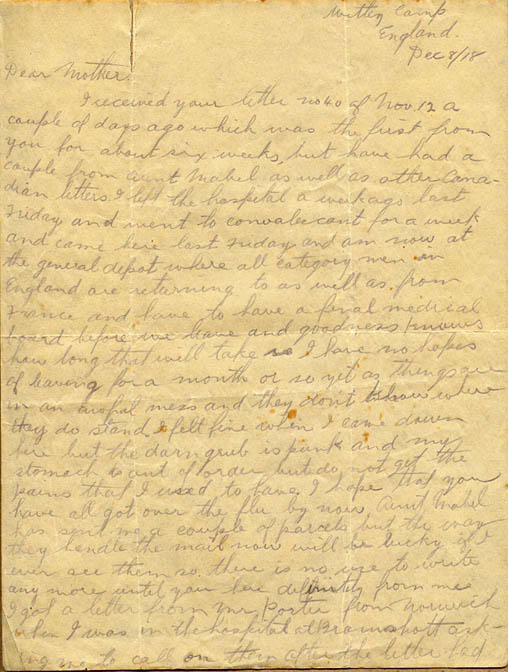 Witley Camp
England.
Dec 8/18
Dear Mother.
I received your letter no 40 of Nov. 12 a
couple of days ago which was the first from
you for about six weeks, but have had a
couple from Aunt Mabel as well as other Cana-
dian letters. I left the hospital a week ago last
Friday and went to convalecant for a week
and came here last Friday and am now at
the general depot where all category men in
England are returning to as well as from
France and have to have a final medical
board before we leave and goodness knows
how long that will take so I have no hopes
of leaving for a month or so yet as things are
in an awful mess and they don't know where
they do stand. I felt fine when I came down
here but the darn grub is punk and my
stomach is out of order but do not get the
pains that I used to have. I hope that you
have all got over the flu by now. Aunt Mabel
has sent me a couple of parcels but the way
they handle the mail now will be lucky if I
ever see them so there is no use to write
any more until you here definitely from me
I got a letter from Mr. Porter from Norwich
when I was in the hospital at Bramshott ask-
ing me to call on them after the letter had